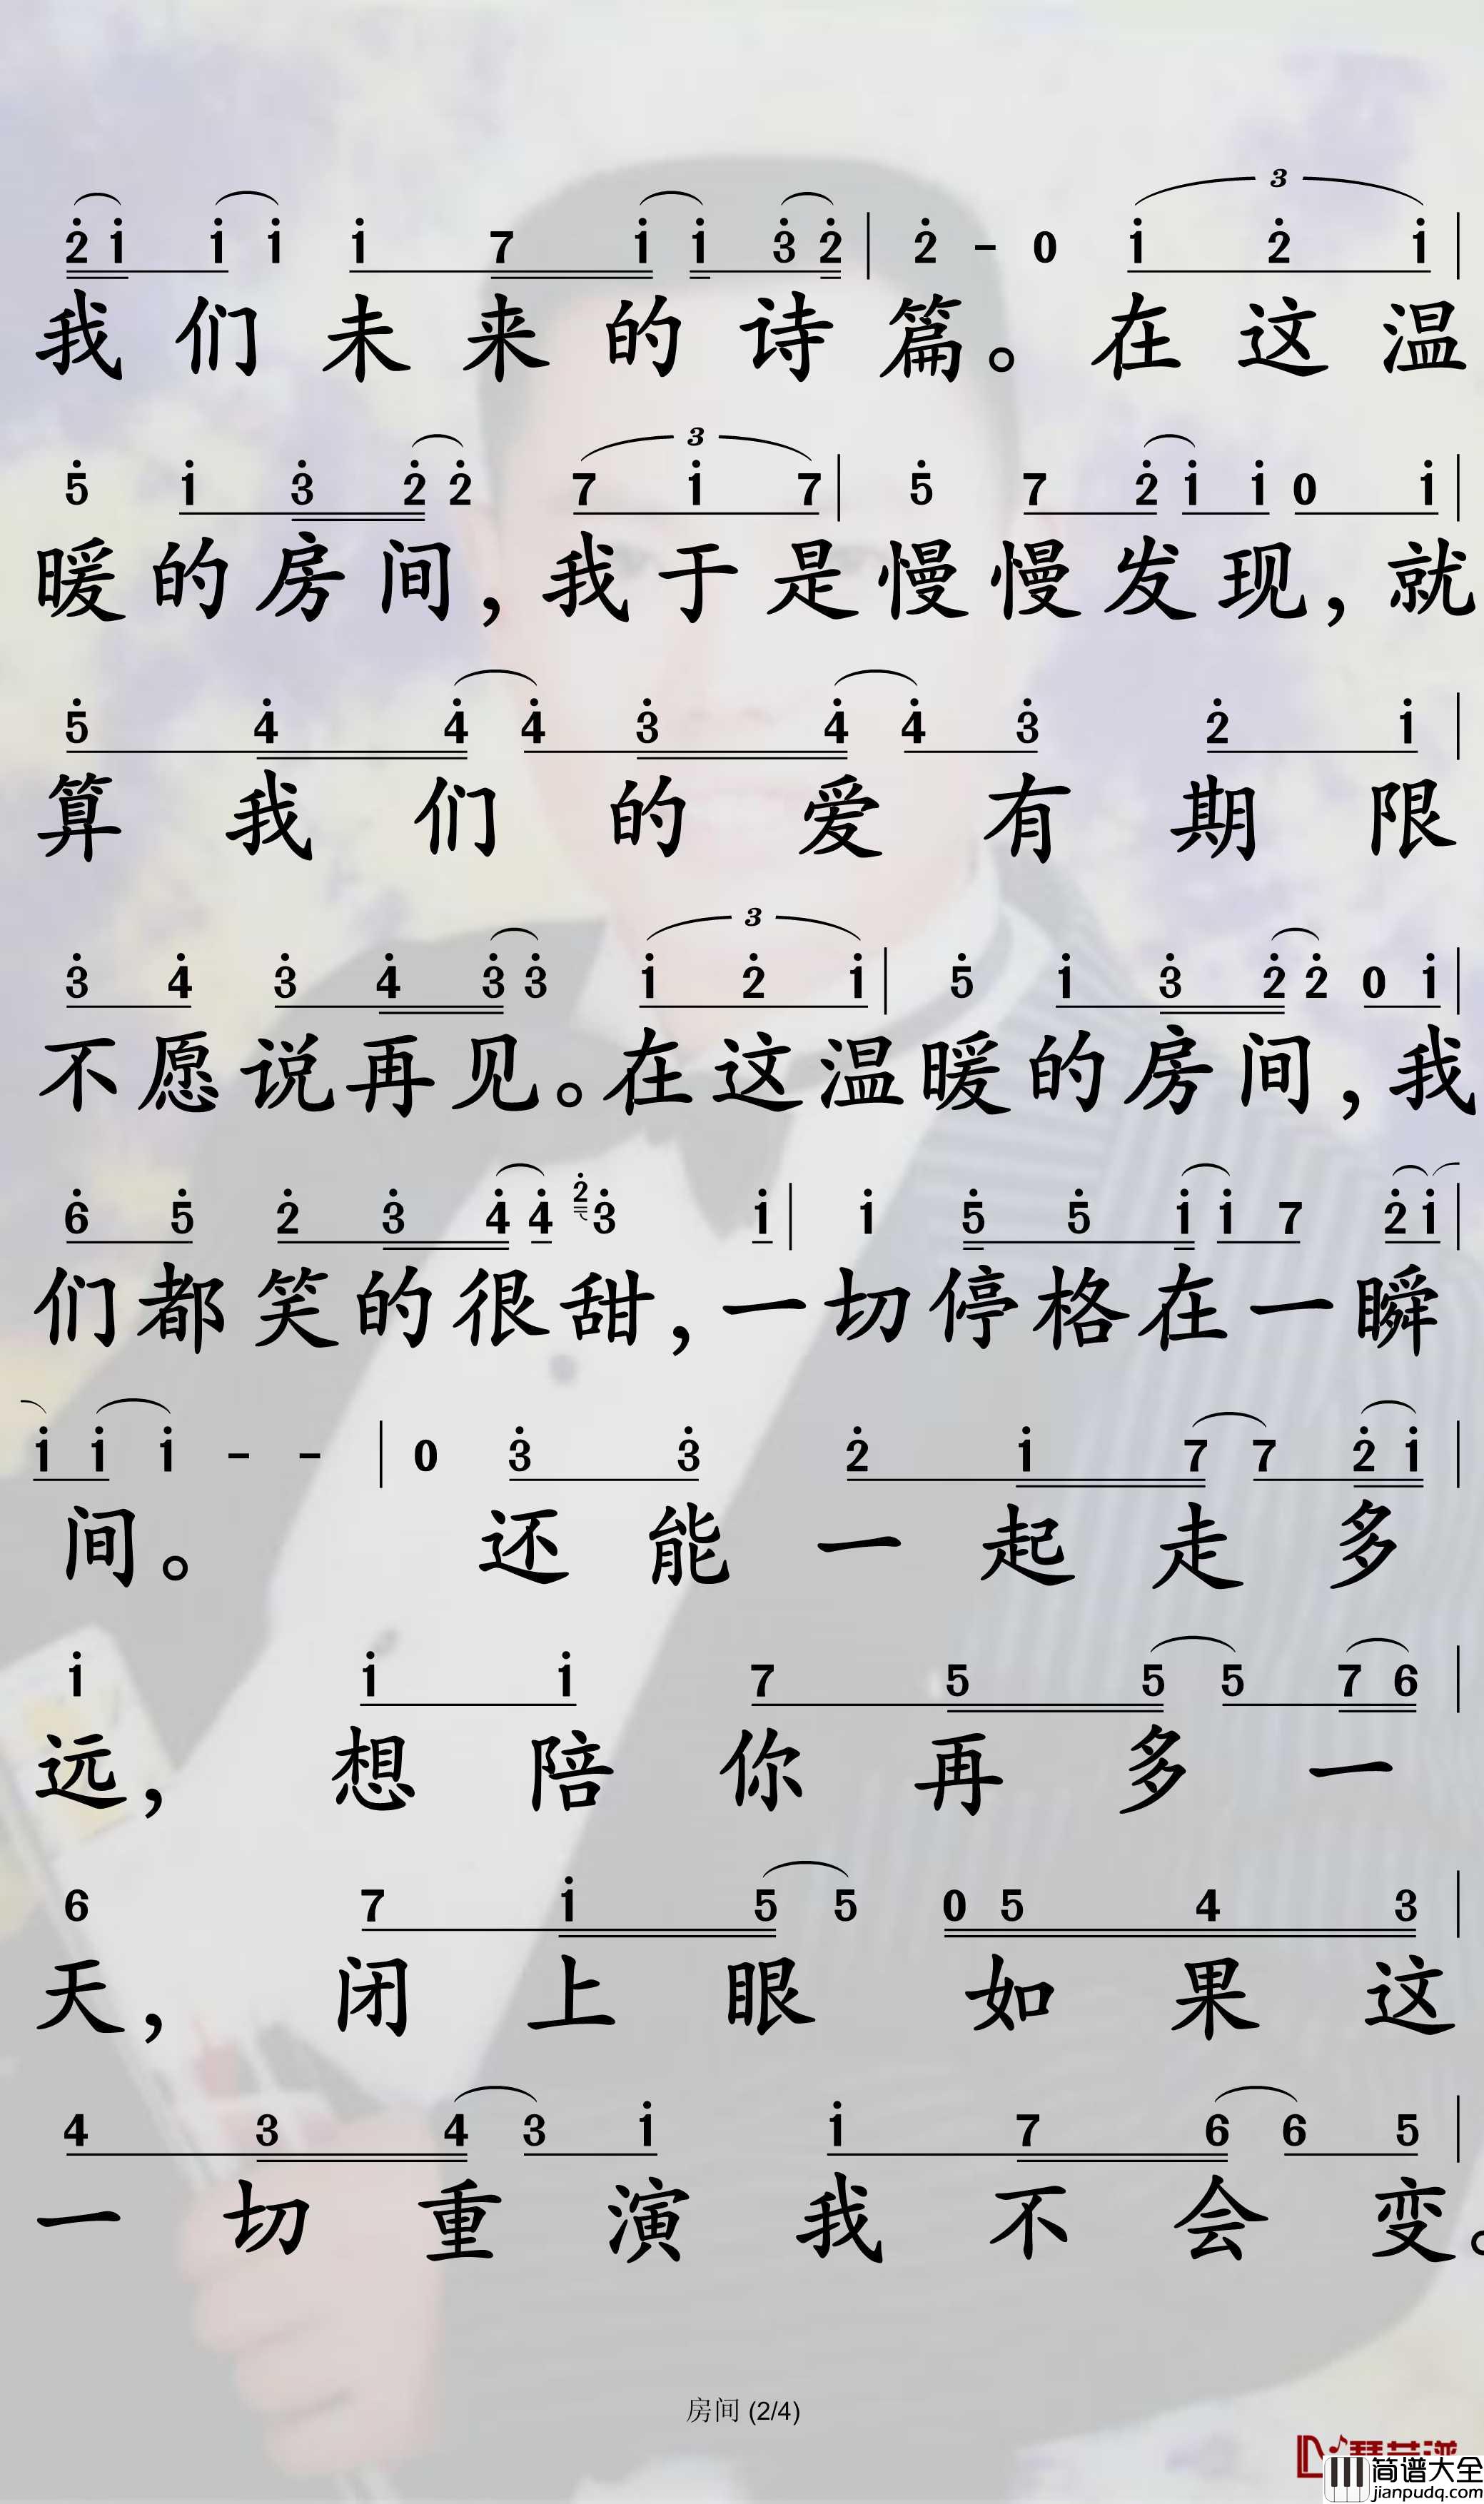 3
2 1 1 1 1 7 1 1 3 2 | 2 - 0 1 2 1 |
我们未来的诗篇。在这温
3
5 1 3 2 2 7 1 7 | 5 7 2 1 1 0 1 |
暖的房间,我于是慢慢发现,就
5 4 4 4 3 4 4 3 2 1 |
算我们的爱有期限
3
3 4 3 4 3 3 1 2 1 | 5 1 3 2 2 0 1 |
不愿说再见。在这温暖的房间,我
6 5 2 3 4 4 2 3 1 | 1 5 5 1 1 7 2 1 |
们都笑的很甜,一切停格在一瞬
1 1 1 - - | 0 3 3 2 1 7 7 2 1 |
间。还能一起走多
1 1 1 7 5 5 5 7 6 |
远,想陪你再多一
6 7 1 5 5 0 5 4 3 |
天,闭上眼如果这
4 3 4 3 1 1 7 6 6 5 |
一切重演我不会变。
房间 (2/4)
简谱大全
jianpudq.com